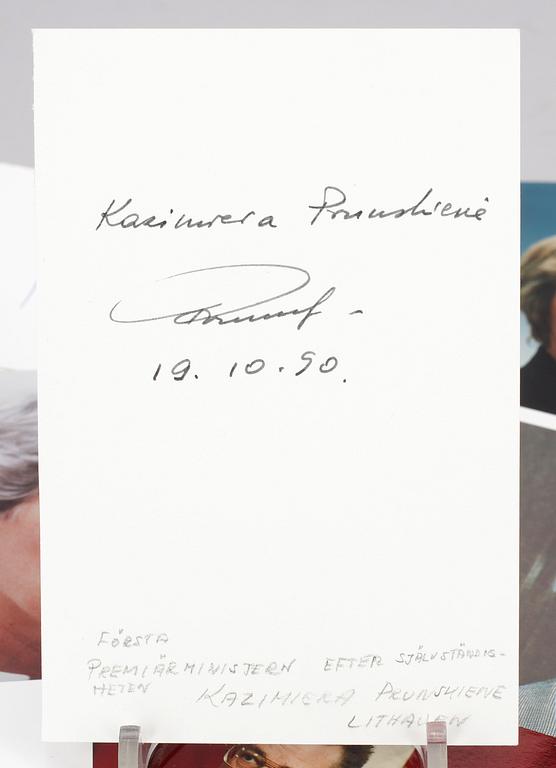 Kazimiera Prunskienė
19.10.90.
FÖRSTA
PREMIÄRMINISTERN EFTER SJÄLVSTÄNDIG-
HETEN KAZIMIERA PRUNSKIENE
LITHAUEN